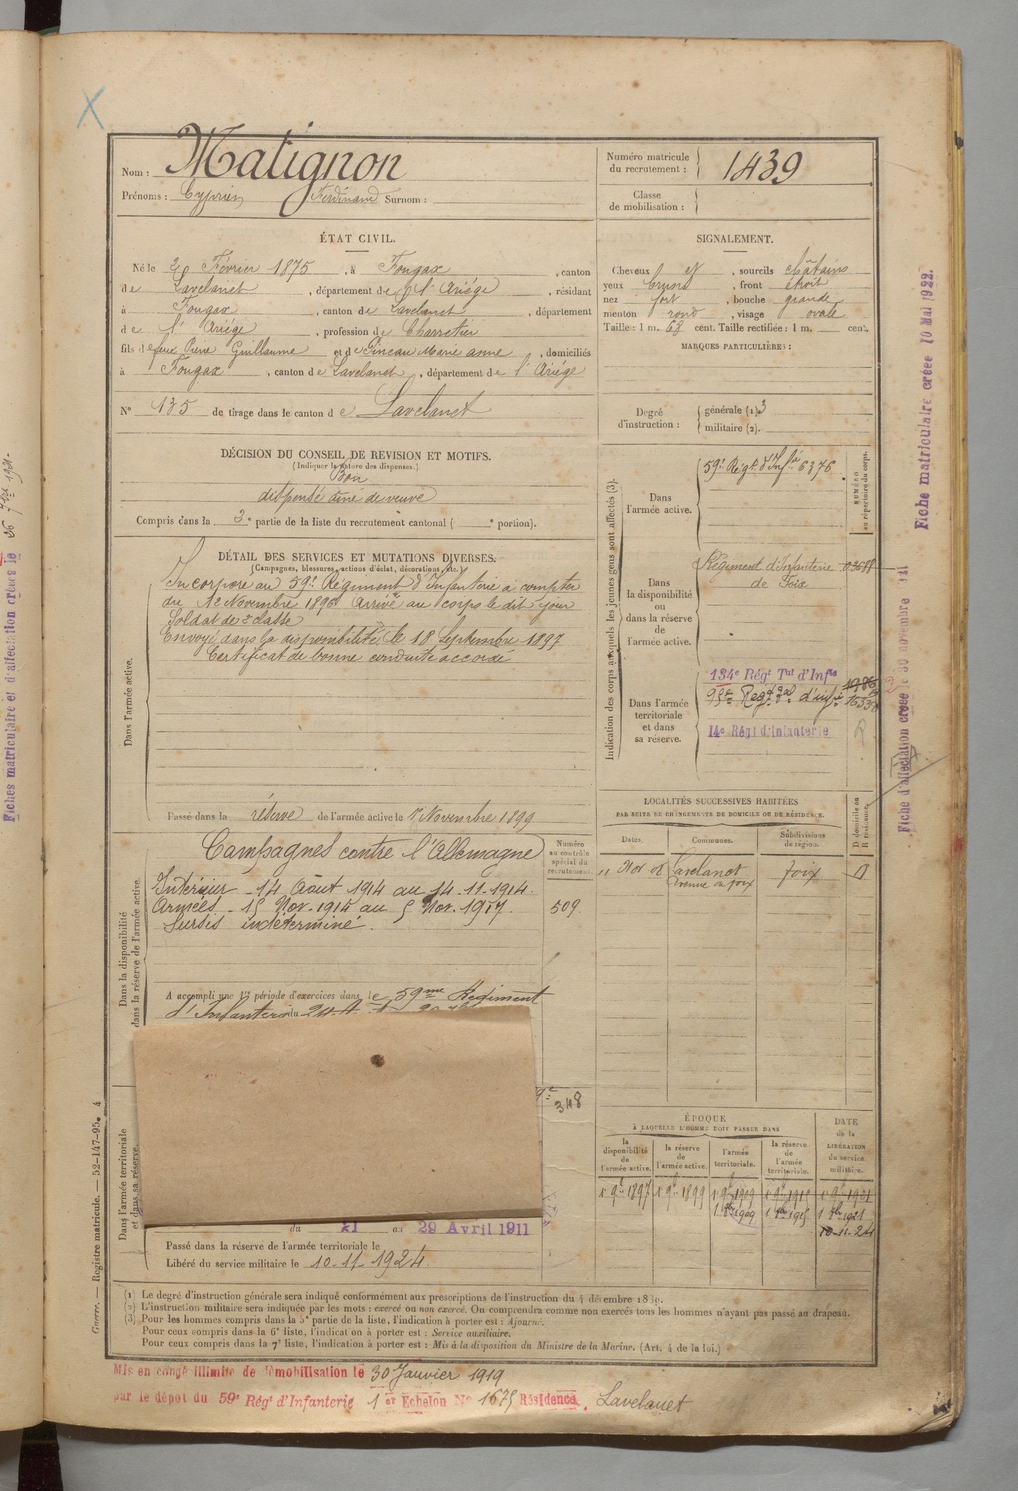 Nom : Matignon
Prénoms : Cyprien Ferdinand Surnom :
Numéro matricule du recrutement : 1439
Classe de mobilisation :
ÉTAT CIVIL.
Né le 2 Février 1875, à Fougax, canton
de Lavelanet, département de l'Ariége, résidant
à Fougax, canton de Lavelanet, département
de l'Ariége, profession de Charretier
fils de feu Pierre Guillaume et de Pineau Marie anne, domiciliés
à Fougax, canton de Lavelanet, département de l'Ariége
N° 135 de tirage dans le canton de Lavelanet
SIGNALEMENT.
Cheveux et, sourcils châtains
yeux bruns, front étroit
nez fort, bouche grande
menton rond, visage ovale
Taille : 1 m. 68 cent. Taille rectifiée : 1 m. cent.
MARQUES PARTICULIÈRES :
Degré d'instruction : générale (1). 3
militaire (2).
DÉCISION DU CONSEIL DE REVISION ET MOTIFS.
(Indiquer la nature des dispenses.)
Bon
dispensé ainé de veuve
Compris dans la 3e partie de la liste du recrutement cantonal ( e portion).
DÉTAIL DES SERVICES ET MUTATIONS DIVERSES.
(Campagnes, blessures, actions d'éclat, décorations, etc.)
Dans l'armée active.
Incorporé au 59e Régiment d'Infanterie à compter
du Novembre 1896 Arrivé au corps le dit jour
Soldat de 2e classe
Envoyé dans la disponibilité le 18 Septembre 1897
Certificat de bonne conduite accordé
Passé dans la réserve de l'armée active le Novembre 1899
Indication des corps auxquels les jeunes gens sont affectés (3).
Dans l'armée active.
59e Régt d'Infie 6376
NUMÉRO au répertoire du corps.
Dans la disponibilité ou dans la réserve de l'armée active.
Régiment d'Infanterie
de Foix
Dans l'armée territoriale et dans sa réserve.
134e Régt Tal d'Infie
d'infie
14e Régt d'Infanterie
LOCALITÉS SUCCESSIVES HABITÉES
PAR SUITE DE CHANGEMENTS DE DOMICILE OU DE RÉSIDENCE.
Dates. Communes. Subdivisions de région. D domicile ou R résidence.
11 Nov 08 Lavelanet Foix D
Avenue de Foix
Dans la disponibilité
et dans la réserve de l'armée active.
Campagnes contre l'Allemagne
Intérieur - 14 Août 1914 au 14-11-1914.
Armées - 15 Nov. 1914 au 5 Nov. 1917.
Sursis indéterminé.
Numéro au contrôle spécial du recrutement.
509
A accompli une 1re période d'exercices dans le 59me Régiment
d'Infanterie du
348
Dans l'armée territoriale
et dans sa réserve.
du 21 au 29 Avril 1911
Passé dans la réserve de l'armée territoriale le
Libéré du service militaire le 10-11-1924.
ÉPOQUE
À LAQUELLE L'HOMME DOIT PASSER DANS
la disponibilité de l'armée active.
la réserve de l'armée active.
l'armée territoriale.
la réserve de l'armée territoriale.
DATE de la LIBÉRATION du service militaire.
1 9bre 1897 1 9bre 1899 1 9bre 1909 1 9bre 1915 1 9bre 1921
1 8bre 1909 1 8bre 1915 1 8bre 1921
10-11-24
Guerre. — Registre matricule. — 52-147-95. 4
(1) Le degré d'instruction générale sera indiqué conformément aux prescriptions de l'instruction du 4 décembre 1889.
(2) L'instruction militaire sera indiquée par les mots : exercé ou non exercé. On comprendra comme non exercés tous les hommes n'ayant pas passé au drapeau.
(3) Pour les hommes compris dans la 5e partie de la liste, l'indication à porter est : Ajourné.
Pour ceux compris dans la 6e liste, l'indication à porter est : Service auxiliaire.
Pour ceux compris dans la 7e liste, l'indication à porter est : Mis à la disposition du Ministre de la Marine. (Art. 4 de la loi.)
Mis en congé illimité de démobilisation le 30 Janvier 1919
par le dépôt du 59e Régt d'Infanterie 1 er Echelon No 1675 Résidence Lavelanet
Fiche matriculaire créée 10 Mai 1922.
Fiche d'affectation créée le 30 novembre
Fiches matriculaire et d'affectation créées le